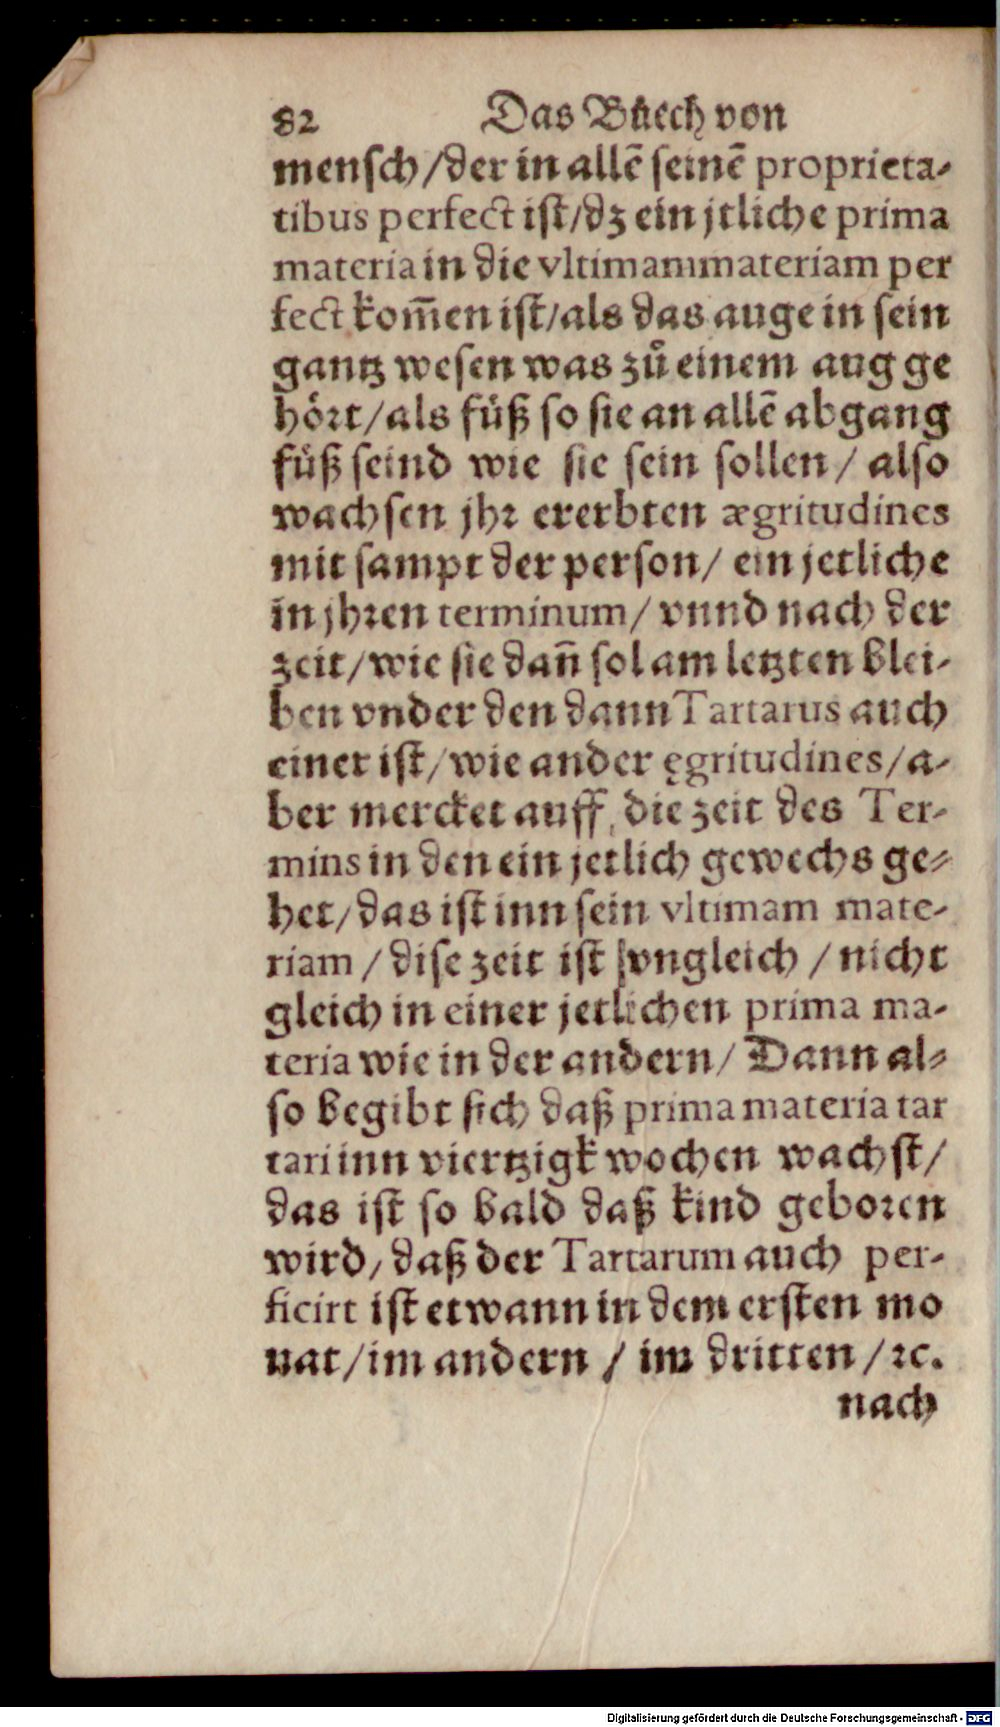 82 Das Bůech von
mensch/der in allē seinē proprieta-
tibus perfect ist/dz ein jtliche prima
materia in die vltimam materiam per
fect kom̄en ist/als das auge in sein
gantz wesen was zů einem aug ge
hört/als füß so sie an allē abgang
füß seind wie sie sein sollen/ also
wachsen jhr ererbten ægritudines
mit sampt der person/ ein jetliche
in jhren terminum/ vnnd nach der
zeit/wie sie dañ sol am letzten blei-
ben vnder den dann Tartarus auch
einer ist/wie ander ęgritudines/a-
ber mercket auff, die zeit des Ter-
mins in den ein jetlich gewechs ge-
het/das ist inn sein vltimam mate-
riam / dise zeit ist vngleich / nicht
gleich in einer jetlichen prima ma-
teria wie in der andern/ Dann al-
so begibt sich daß prima materia tar
tari inn viertzigk wochen wachst/
das ist so bald daß kind geboren
wird/daß der Tartarum auch per-
ficirt ist etwann in dem ersten mo
nat/im andern / im dritten /ꝛc.
nach
Digitalisierung gefördert durch die Deutsche Forschungsgemeinschaft - DFG